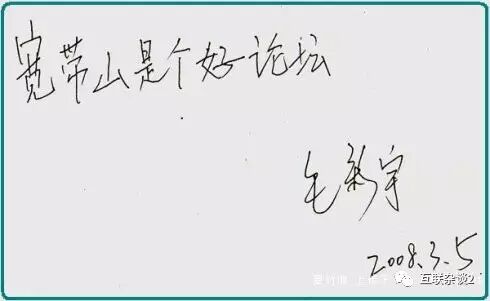 宽带山是个好论坛
毛新宇
2008.3.5
互联杂谈2